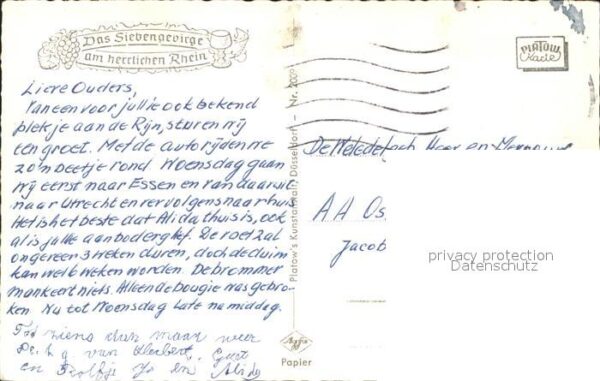 Das Siebengebirge
am herrlichen Rhein
Lieve Ouders,
Van een voor jullie ook bekend
plekje aan de Rijn, sturen wij
een groet. Met de auto rijden we
zo'n beetje rond Woensdag gaan
wij eerst naar Essen en van daar uit
naar Utrecht en vervolgens naar huis
Het is het beste dat Alida thuis is, ook
al is jullie aanbod erg lief. De voet zal
ongeveer 3 weken duren, doch de duim
kan wel 6 weken worden. De brommer
mankeert niets. Alleen de bougie was gebro-
ken. Nu tot Woensdag late namiddag.
Tot ziens dan maar weer
van Herbert, Gust
en Jo en Alida
Platow's Kunstanstalt, Düsseldorf - Nr.
PLATOW
Karte
De Weledelgeb Heer en Mevrouw
A A Os
Jacob
privacy protection
Datenschutz
Agfa
Papier